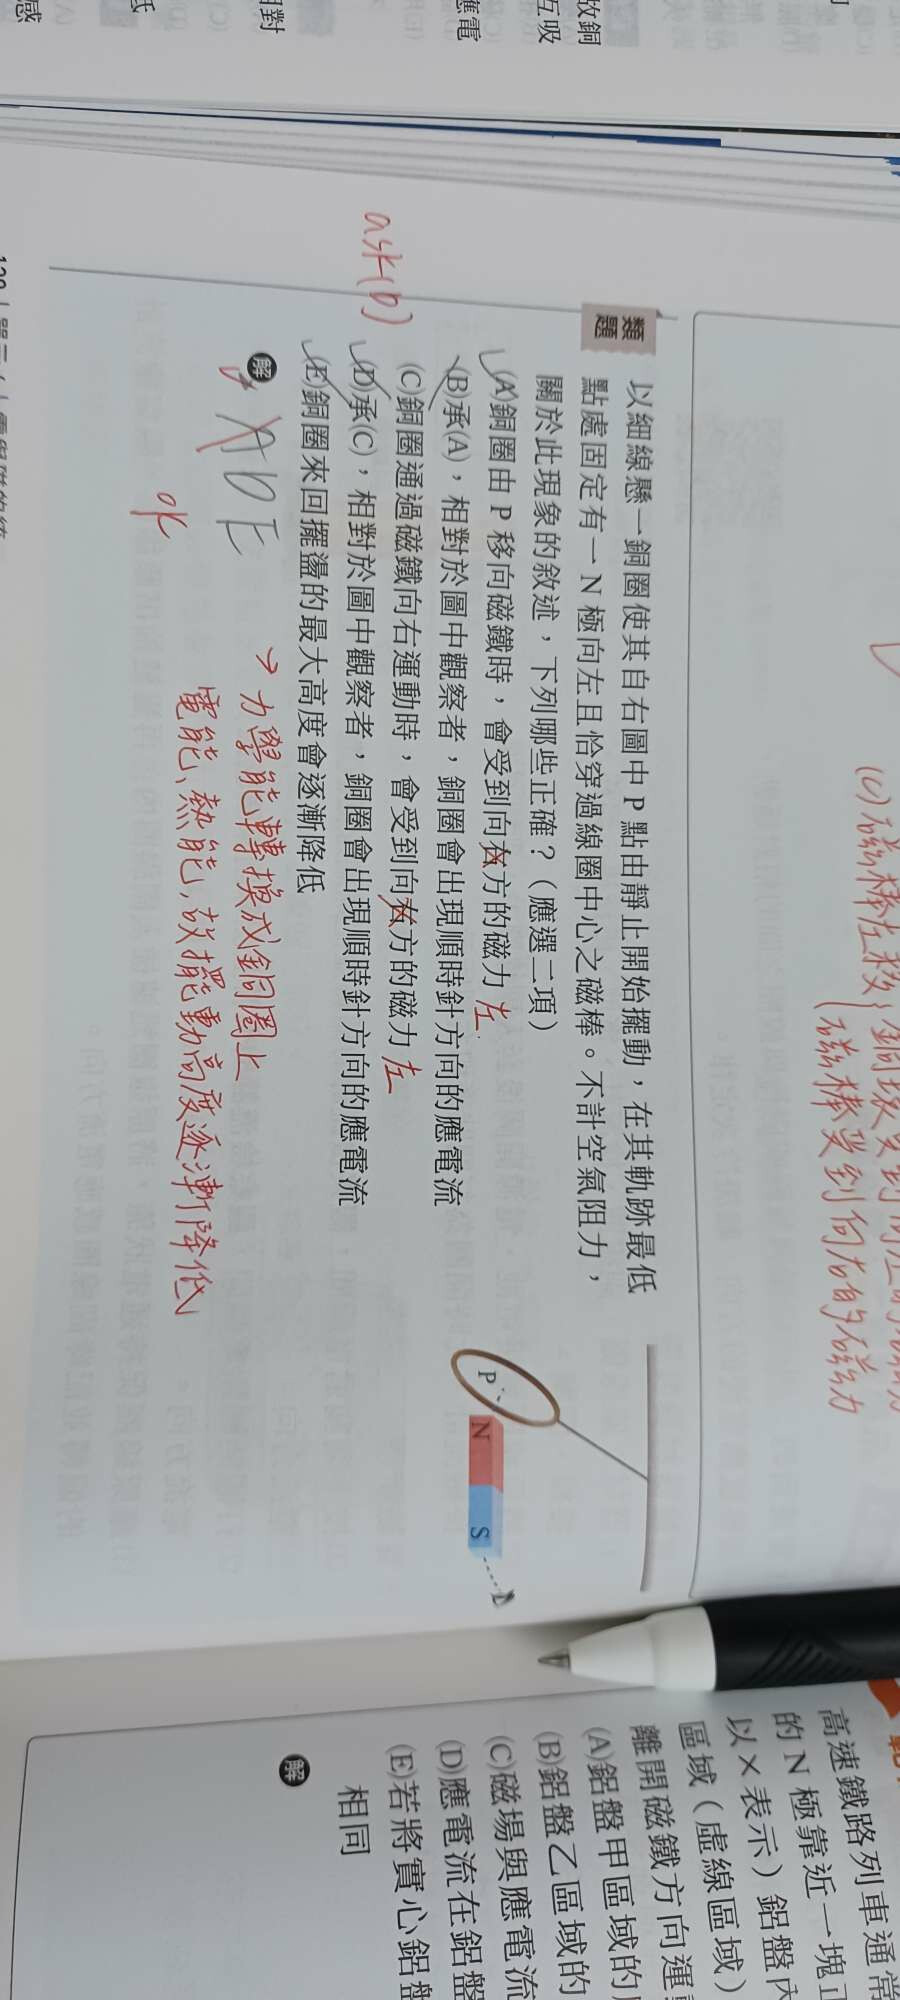 類題
以細線懸一銅圈使其自右圖中 P 點由靜止開始擺動，在其軌跡最低
點處固定有一 N 極向左且恰穿過線圈中心之磁棒。不計空氣阻力，
關於此現象的敘述，下列哪些正確？（應選二項）
(A)銅圈由 P 移向磁鐵時，會受到向右方的磁力 左
(B)承(A)，相對於圖中觀察者，銅圈會出現順時針方向的應電流
(C)銅圈通過磁鐵向右運動時，會受到向右方的磁力 左
(D)承(C)，相對於圖中觀察者，銅圈會出現順時針方向的應電流
(E)銅圈來回擺盪的最大高度會逐漸降低
ask(b)
解
A D E
ok
→ 力學能轉換成銅圈上
電能、熱能，故擺動高度逐漸降低
P
N
S
(c) 磁棒左移
磁棒受到向右的磁力
高速鐵路列車通常
的 N 極靠近一塊正
以 × 表示）鋁盤內
區域（虛線區域）
離開磁鐵方向運
(A)鋁盤甲區域的
(B)鋁盤乙區域的
(C)磁場與應電流
(D)應電流在鋁盤
(E)若將實心鋁盤
相同
解